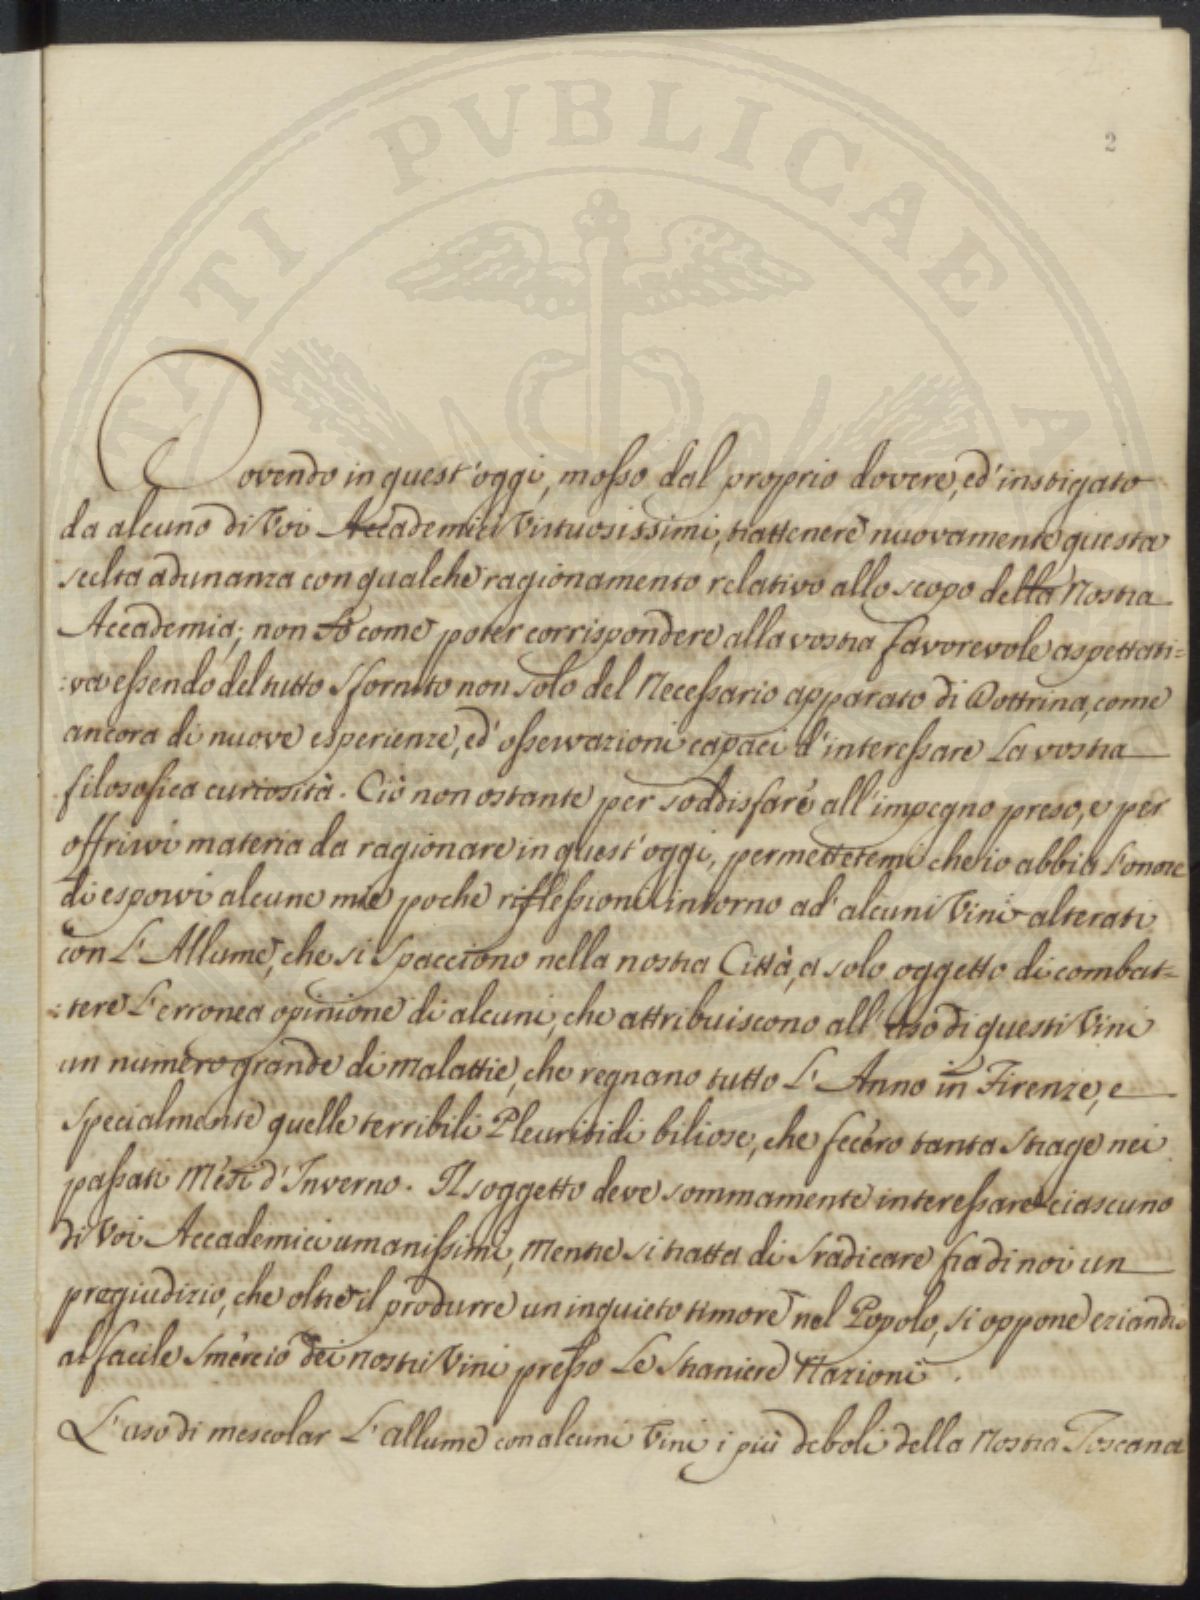 2
Dovendo in quest'oggi, mosso dal proprio dovere, ed' instigato
da alcuno di Voi Accademici Virtuosissimi, trattenere nuovamente questa
scelta adunanza con qualche ragionamento relativo allo scopo della Nostra
Accademia; non so come poter corrispondere alla vostra favorevole aspettati=
:va essendo del tutto sfornito non solo del Necessario apparato di Dottrina, come
ancora di nuove esperienze, ed' osservazioni capaci d'interessare La vostra
filosofica curiosità. Ciò non ostante per soddisfare all'impegno preso, e per
offrirvi materia da ragionare in quest'oggi, permettetemi che io abbia L'onore
di esporvi alcune mie poche riflessioni intorno ad' alcuni Vini alterati
con L'Allume, che si Spacciono nella nostra Città, a solo oggetto di combat=
:tere L'erronea opinione di alcuni, che attribuiscono all'uso di questi Vini
un numero grande di Malattie, che regnano tutto L'Anno in Firenze, e
specialmente quelle terribili Pleuritidi biliose, che fecero tanta Strage nei
passati Mesi d'Inverno. Il soggetto deve sommamente interessare ciascuno
di Voi Accademici umanissimi, Mentre si tratta di Sradicare fra di noi un
pregiudizio, che oltre il produrre un inquieto timore nel Popolo, si oppone eziandio
al facile Smercio dei nostri Vini presso Le Straniere Nazioni.
L'uso di mescolar L'allume con alcuni Vini i più deboli della Nostra Toscana
PUBLICAE